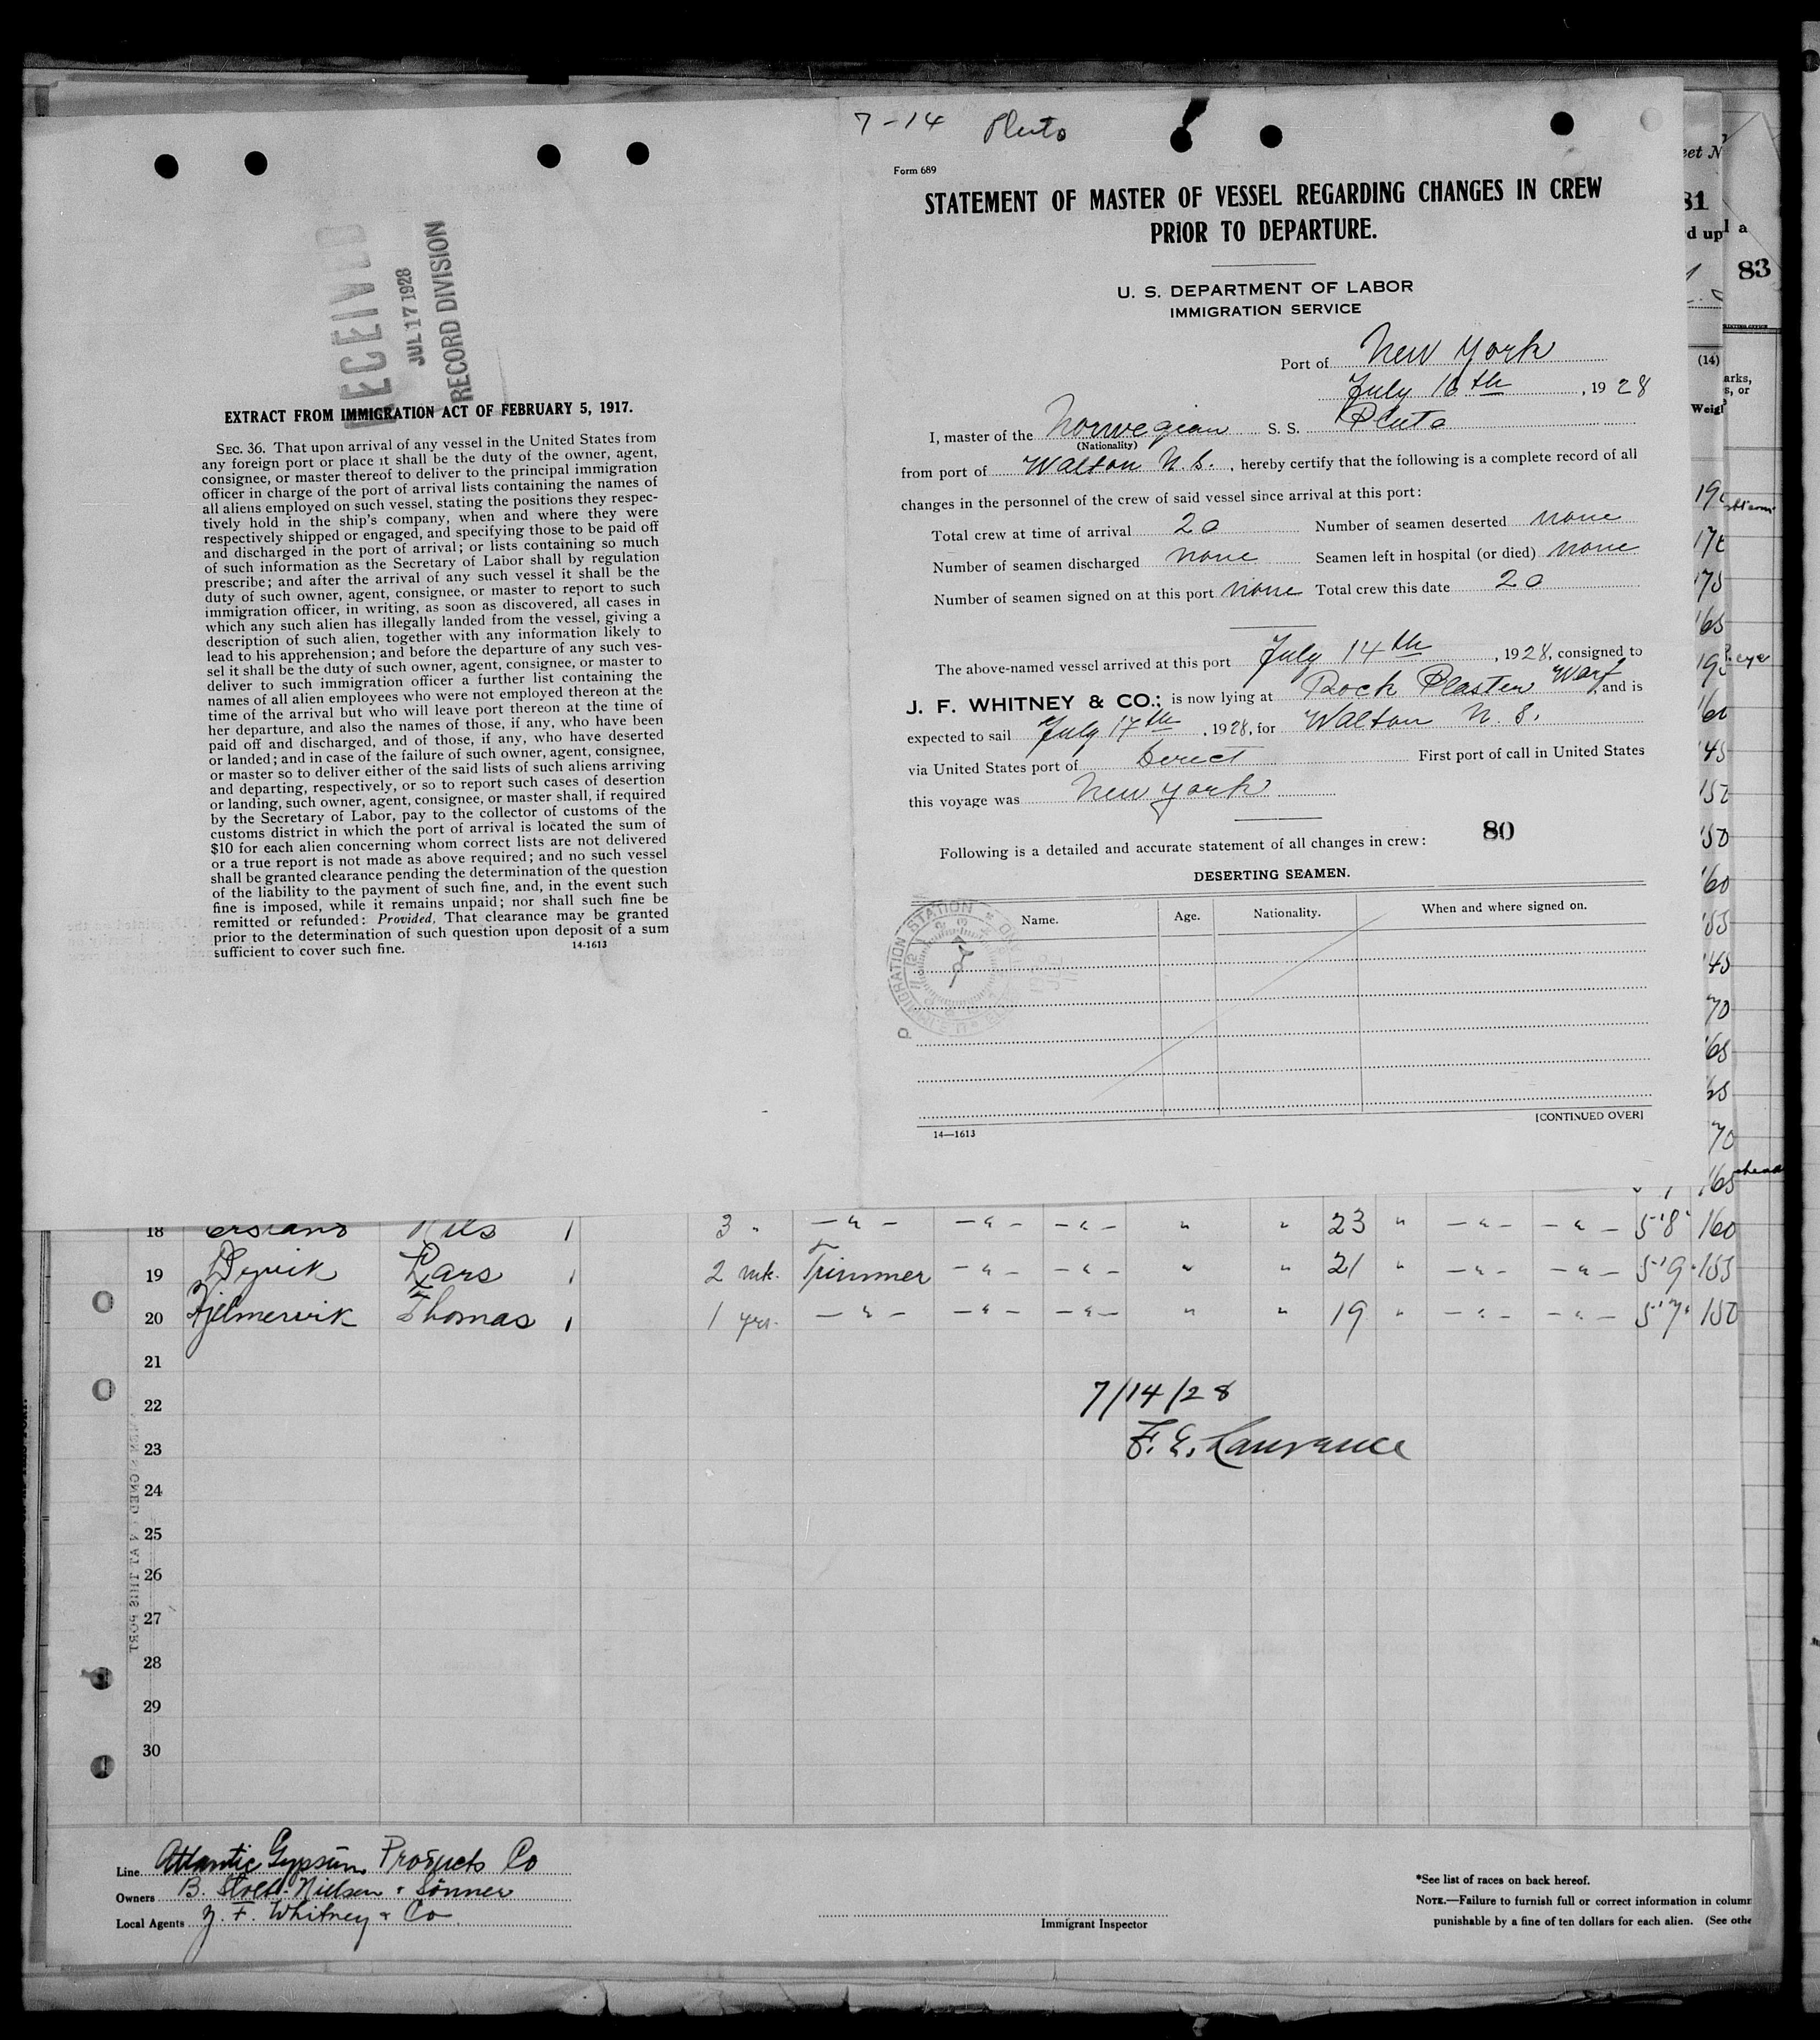 RECEIVED
JUL 17 1928
RECORD DIVISION
EXTRACT FROM IMMIGRATION ACT OF FEBRUARY 5, 1917.
SEC. 36. That upon arrival of any vessel in the United States from
any foreign port or place it shall be the duty of the owner, agent,
consignee, or master thereof to deliver to the principal immigration
officer in charge of the port of arrival lists containing the names of
all aliens employed on such vessel, stating the positions they respec-
tively hold in the ship's company, when and where they were
respectively shipped or engaged, and specifying those to be paid off
and discharged in the port of arrival; or lists containing so much
of such information as the Secretary of Labor shall by regulation
prescribe; and after the arrival of any such vessel it shall be the
duty of such owner, agent, consignee, or master to report to such
immigration officer, in writing, as soon as discovered, all cases in
which any such alien has illegally landed from the vessel, giving a
description of such alien, together with any information likely to
lead to his apprehension; and before the departure of any such ves-
sel it shall be the duty of such owner, agent, consignee, or master to
deliver to such immigration officer a further list containing the
names of all alien employees who were not employed thereon at the
time of the arrival but who will leave port thereon at the time of
her departure, and also the names of those, if any, who have been
paid off and discharged, and of those, if any, who have deserted
or landed; and in case of the failure of such owner, agent, consignee,
or master so to deliver either of the said lists of such aliens arriving
and departing, respectively, or so to report such cases of desertion
or landing, such owner, agent, consignee, or master shall, if required
by the Secretary of Labor, pay to the collector of customs of the
customs district in which the port of arrival is located the sum of
$10 for each alien concerning whom correct lists are not delivered
or a true report is not made as above required; and no such vessel
shall be granted clearance pending the determination of the question
of the liability to the payment of such fine, and, in the event such
fine is imposed, while it remains unpaid; nor shall such fine be
remitted or refunded: Provided, That clearance may be granted
prior to the determination of such question upon deposit of a sum
sufficient to cover such fine. 14-1613
7-14 Pluto
Form 689
STATEMENT OF MASTER OF VESSEL REGARDING CHANGES IN CREW
PRIOR TO DEPARTURE.
U. S. DEPARTMENT OF LABOR
IMMIGRATION SERVICE
Port of New York
July 16th, 1928
I, master of the Norwegian S. S. Pluto
(Nationality)
from port of Walton N.S., hereby certify that the following is a complete record of all
changes in the personnel of the crew of said vessel since arrival at this port:
Total crew at time of arrival 20 Number of seamen deserted none
Number of seamen discharged none Seamen left in hospital (or died) none
Number of seamen signed on at this port none Total crew this date 20
The above-named vessel arrived at this port July 14th, 1928, consigned to
J. F. WHITNEY & CO.; is now lying at Rock Plaster Warf and is
expected to sail July 17th, 1928, for Walton N. S.
via United States port of Direct First port of call in United States
this voyage was New York
80
Following is a detailed and accurate statement of all changes in crew:
DESERTING SEAMEN.
Name. Age. Nationality. When and where signed on.
[CONTINUED OVER]
14—1613
83
(14)
18 Nils 3 " 23 " 5'8" 160
19 Lars 2 mk. Trimmer 21 " 5'9" 155
20 Fjelmervik Thomas 1 yrs. 19 " 5'7" 150
21
22 7/14/28
23 F. E. Lawrence
24
25
26
27
28
29
30
Line Atlantic Gypsum Products Co
Owners B. Stolt-Nielsen & Sönner
Local Agents J. F. Whitney & Co
Immigrant Inspector
*See list of races on back hereof.
NOTE.—Failure to furnish full or correct information in column
punishable by a fine of ten dollars for each alien. (See othe